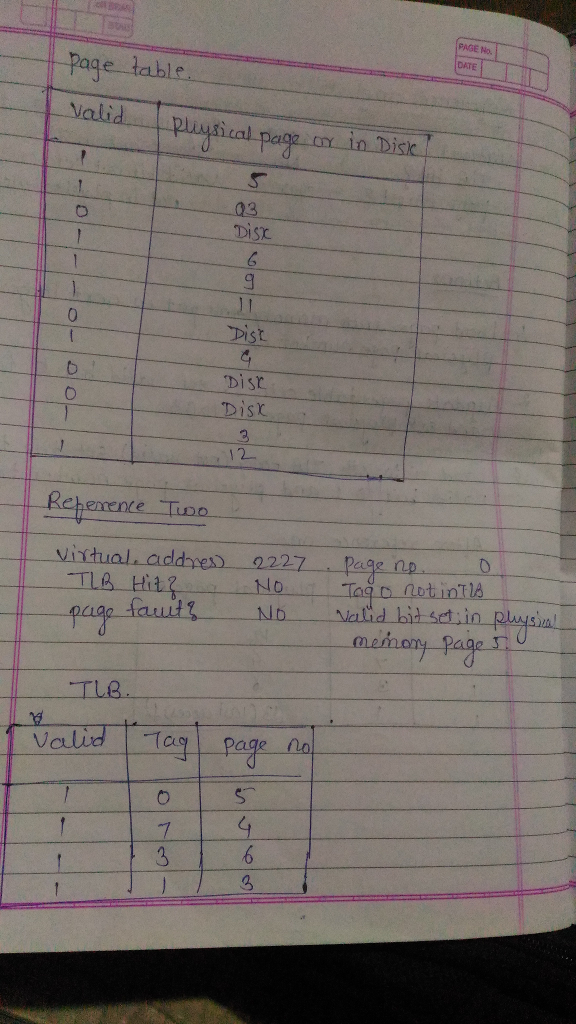 PAGE NO.
DATE
page table.
Valid physical page or in Disk
1 5
1 03
0 Disk
1 6
1 9
1 11
0 Disk
1 4
0 Disk
0 Disk
1 3
1 12
Reference Two
virtual. address 2227. page no. 0
TLB Hit? NO Tag 0 not in TLB
page fault? NO valid bit set; in physical
memory page 5.
TLB.
Valid Tag page no
1 0 5
1 7 4
1 3 6
1 1 3